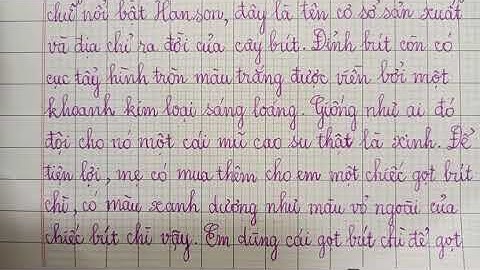 chữ nổi bật Hanson, đây là tên cơ sở sản xuất
và địa chỉ ra đời của cây bút. Đỉnh bút còn có
cục tẩy hình tròn màu trắng được viền bởi một
khoanh kim loại sáng loáng. Giống như ai đó
đội cho nó một cái mũ cao su thật là xinh. Để
tiện lợi, mẹ có mua thêm cho em một chiếc gọt bút
chì, có màu xanh dương như màu vỏ ngoài của
chiếc bút chì vậy. Em dùng cái gọt bút chì để gọt